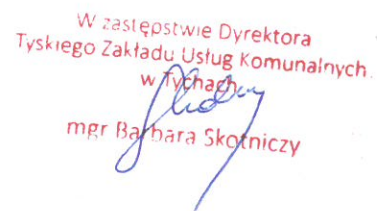 W zastępstwie Dyrektora
Tyskiego Zakładu Usług Komunalnych
w Tychach
mgr Barbara Skotniczy